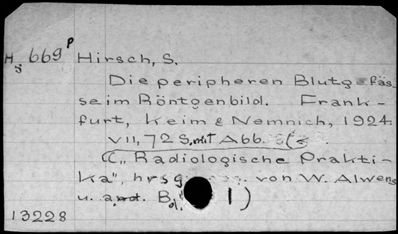 H 669 P Hirsch, S.
Die peripheren Blutgefäs-
se im Röntgenbild. Frank-
furt, Keim & Nemnich, 1924.
VII, 72 S. mit Abb.
(„Radiologische Prakti-
ka", hrsg. von W. Alwens
u. and. Bd. 1)
13228